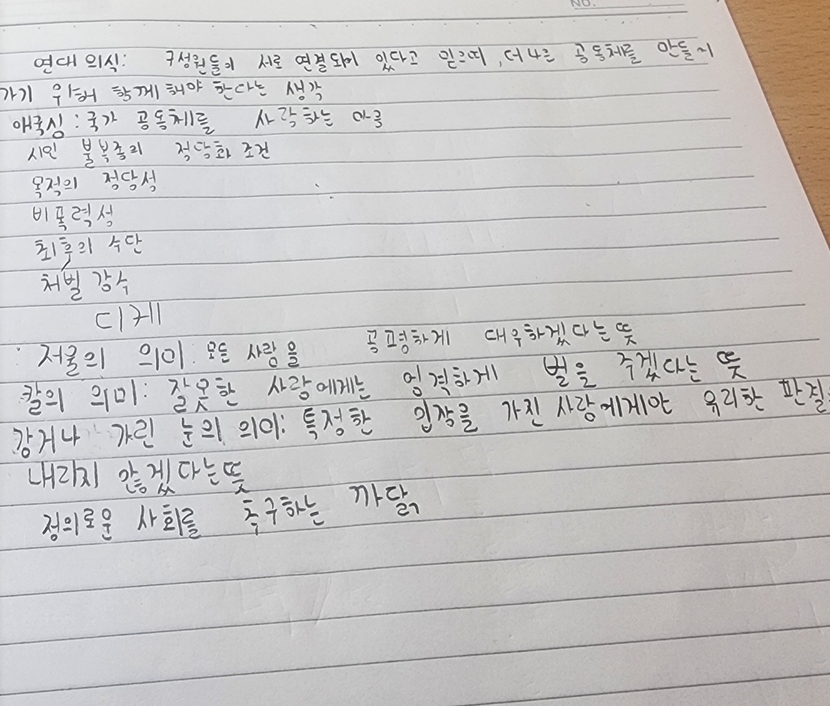 NO.
연대 의식: 구성원들이 서로 연결되어 있다고 믿으며, 더 나은 공동체를 만들기
가기 위해 함께 해야 한다는 생각
애국심: 국가 공동체를 사랑하는 마음
시민 불복종의 정당화 조건
목적의 정당성
비폭력성
최후의 수단
처벌 감수
디케
저울의 의미: 모든 사람을 공평하게 대우하겠다는 뜻
칼의 의미: 잘못한 사람에게는 엄격하게 벌을 주겠다는 뜻
감거나 가린 눈의 의미: 특정한 입장을 가진 사람에게만 유리한 판결을
내리지 않겠다는 뜻
정의로운 사회를 추구하는 까닭